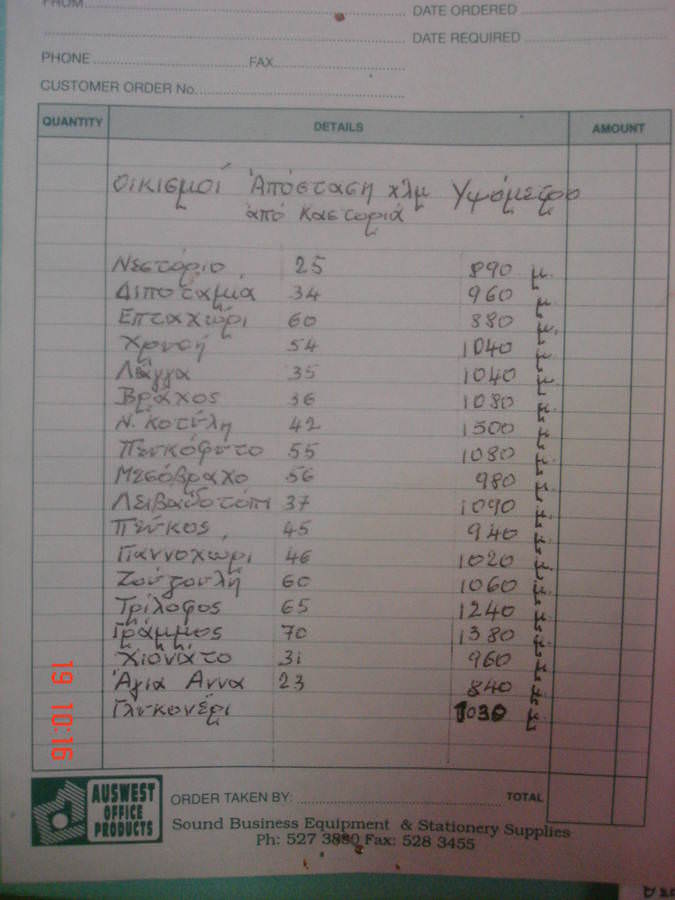 FROM
DATE ORDERED
DATE REQUIRED
PHONE FAX
CUSTOMER ORDER No.
QUANTITY DETAILS AMOUNT
Οικισμοί Απόσταση χλμ Υψόμετρο
από Καστοριά
Νεστόριο 25 890 μ.
Διποταμιά 34 960 μ.
Επταχώρι 60 880 μ.
Χρυσή 54 1040 μ.
Λάγγα 35 1040 μ.
Βράχος 36 1080 μ.
Ν. Κοτύλη 42 1500 μ.
Πευκόφυτο 55 1080 μ.
Μεσόβραχο 56 980 μ.
Λειβαδοτόπι 37 1090 μ.
Πεύκος 45 940 μ.
Γιαννοχώρι 46 1020 μ.
Ζούζουλη 60 1060 μ.
Τρίλοφος 65 1240 μ.
Γράμμος 70 1380 μ.
Χιονάτο 31 960 μ.
Άγια Αννα 23 840 μ.
Γλυκονέρι 1030 μ
19 10:16
AUSWEST
OFFICE
PRODUCTS
ORDER TAKEN BY: TOTAL
Sound Business Equipment & Stationery Supplies
Ph: 527 3880 Fax: 528 3455